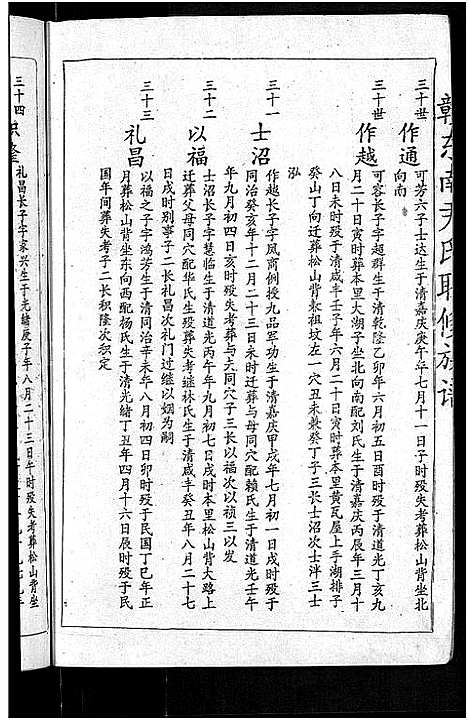 赣东南尹氏联修族谱
三十世
作通
可芳六子士达生于清嘉庆庚午年七月十一日子时殁失考葬松山背坐北
向南
三十世
作越
可容长子字超群生于清乾隆乙卯年六月初五日酉时殁于清道光丁亥九
月二十日寅时葬本里大湖子坐北向南配刘氏生于清嘉庆丙辰年三月十
八日未时殁于清咸丰壬子年六月二十日寅时葬本里黄瓦屋上手湖排子
癸山丁向迁葬松山背敕祖坟左一穴丑未兼癸丁子三长士沼次士泮三士
泓
三十一
士沼
作越长子字凤商例授九品军功生于清嘉庆甲戌年九月初一日戌时殁于
同治癸亥年十二月二十三日未时迁葬与母同穴配赖氏生于清道光壬午
年九月初四日亥时殁失考葬与夫同穴子三长以福次以祯三以发
三十二
以福
士沼长子字慧临生于清道光丙午年九月初七日戌时本里松山背大路上
迁葬父母同穴配华氏生殁葬失考继林氏生于清咸丰癸丑年八月二十七
日戌时别事子二长礼昌次礼门过继以姻为嗣
三十三
礼昌
以福之子字鸿芳生于清同治辛未年八月初四日卯时殁于民国丁巳年正
月葬松山背坐东向西配杨氏生于清光绪丁丑年四月十六日辰时殁于民
国年间葬失考子二长积隆次积定
三十四
积隆
礼昌长子字家兴生于光绪庚子年八月二十三日午时殁失考葬松山背坐